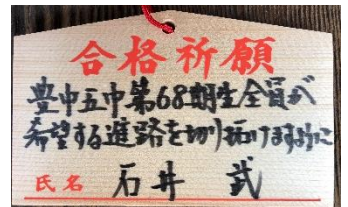 合格祈願
豊中五中第68期生全員が
希望する進路を切り拓けますように
氏名 石井 武